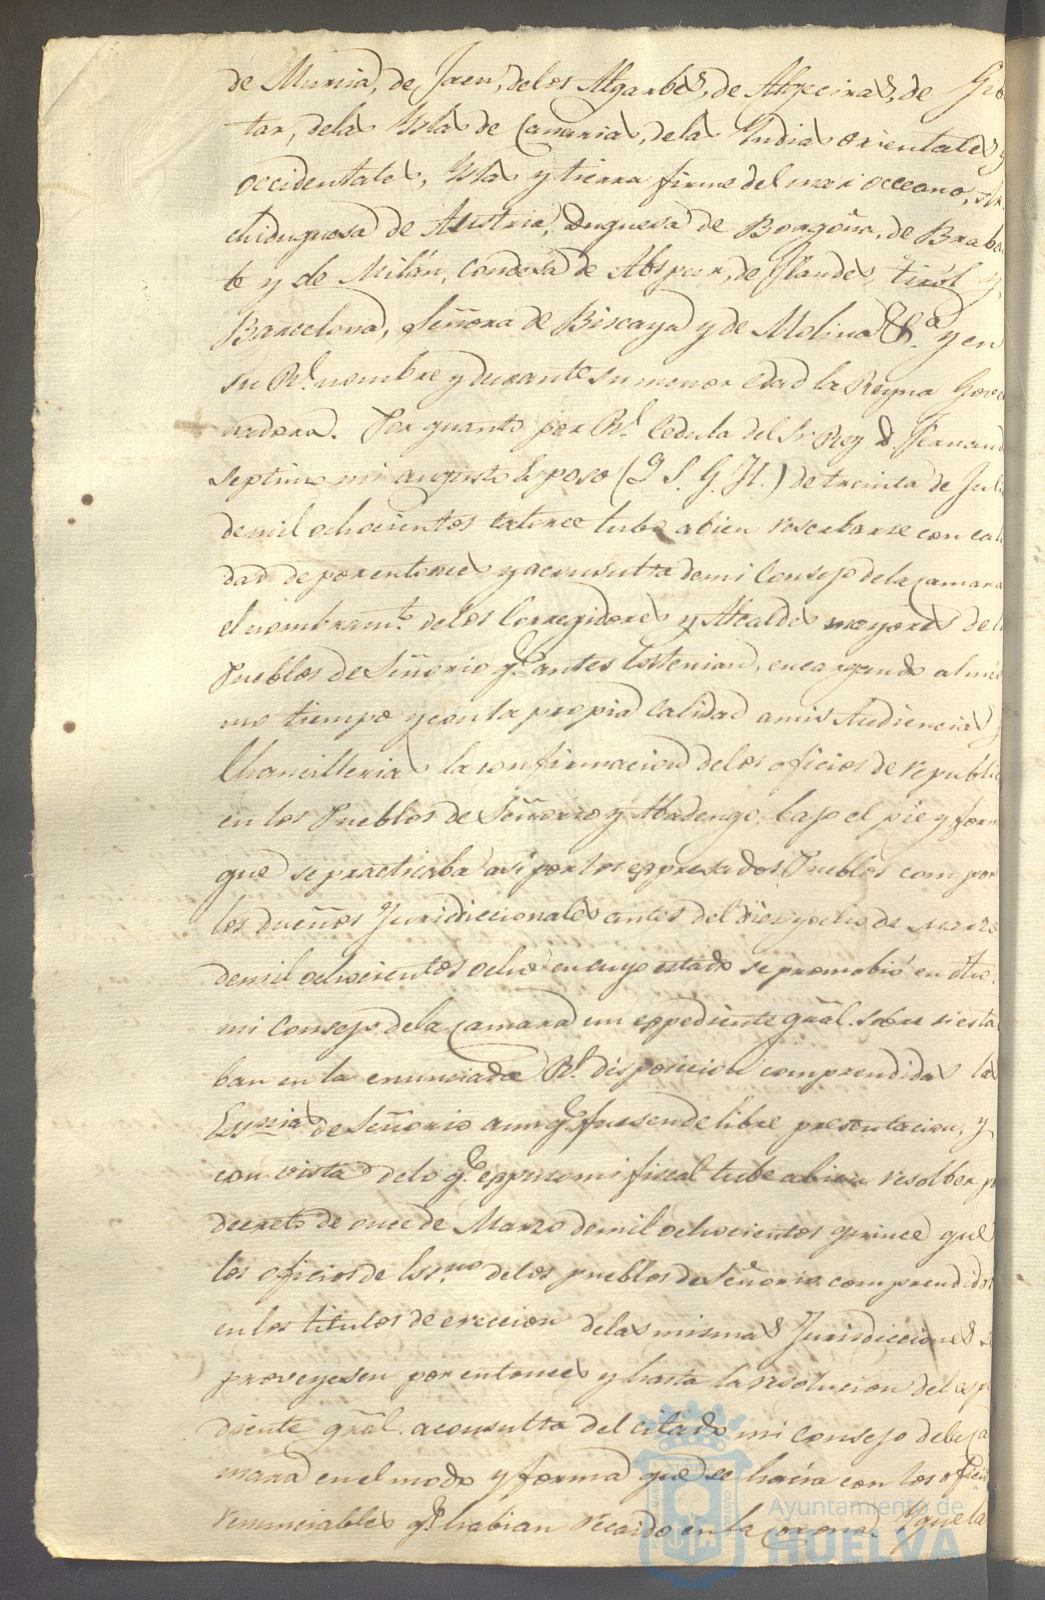 de Murcia, de Jaen, delos Algarbes, de Algeciras, de
tar, delas Yslas de Canarias, delas Yndias orientales y
occidentales, Yslas y tierra firme del mar occeano, Ar
chiduquesa de Austria, Duquesa de Borgoña, de Braban
te y de Milán, Condesa de Abspur, de Flandes, Tiról y
Barcelona, Señora de Biscaya y de Molina &.ª y en
su Rl. nombre y durante su menor edad la Reyna Gove
nadora. Por quanto por Rl. Cedula del Sr. Rey D. Fernand
septimo mi augusto Esposo (Q. S. G. H.) de treinta de Jul
demil ochocientos catorce tubo abien reserbarse con cali
dad de por entonces y aconsulta demi Consejo dela Camara
el nombramto. delos Corregidores y Alcaldes mayores de l
Pueblos de Señorio q.e antes los tenian, encargando al mis
mo tiempo y con la propia calidad amis Audiencias y
Chancillerias la confirmacion delos oficios de republic
en los Pueblos de Señorio y Abadengo, bajo el pie y form
que se practicaba asi por los espresados Pueblos com por
los dueños Juridiccionales antes del diez y ocho de marzo
demil ochocientos ocho en cuyo estado se promobió en dho.
mi Consejo dela Camara un eppediente grãl. sobre si esta
ban en la enunciada Rl. disposicion comprendidas las
Essnias de Señorio aunq.e fuesen de libre presentacion, y
con vista delo q.e eppuso mi fiscal tube abien resolber p
decreto de once de Marzo demil ochocientos quince que
los oficios de Essno. delos pueblos de Señorio comprendidos
en los titulos de ereccion delas mismas Jurisdicciones se
proveyesen por entonces y hasta la resolucion del espe
diente grãl. aconsulta del citado mi Consejo dela Ca
mara en el modo y forma que se hacia con los oficios
renunciables q.e habian recaido en la Corona. Y que la
Ayuntamiento de
HUELVA